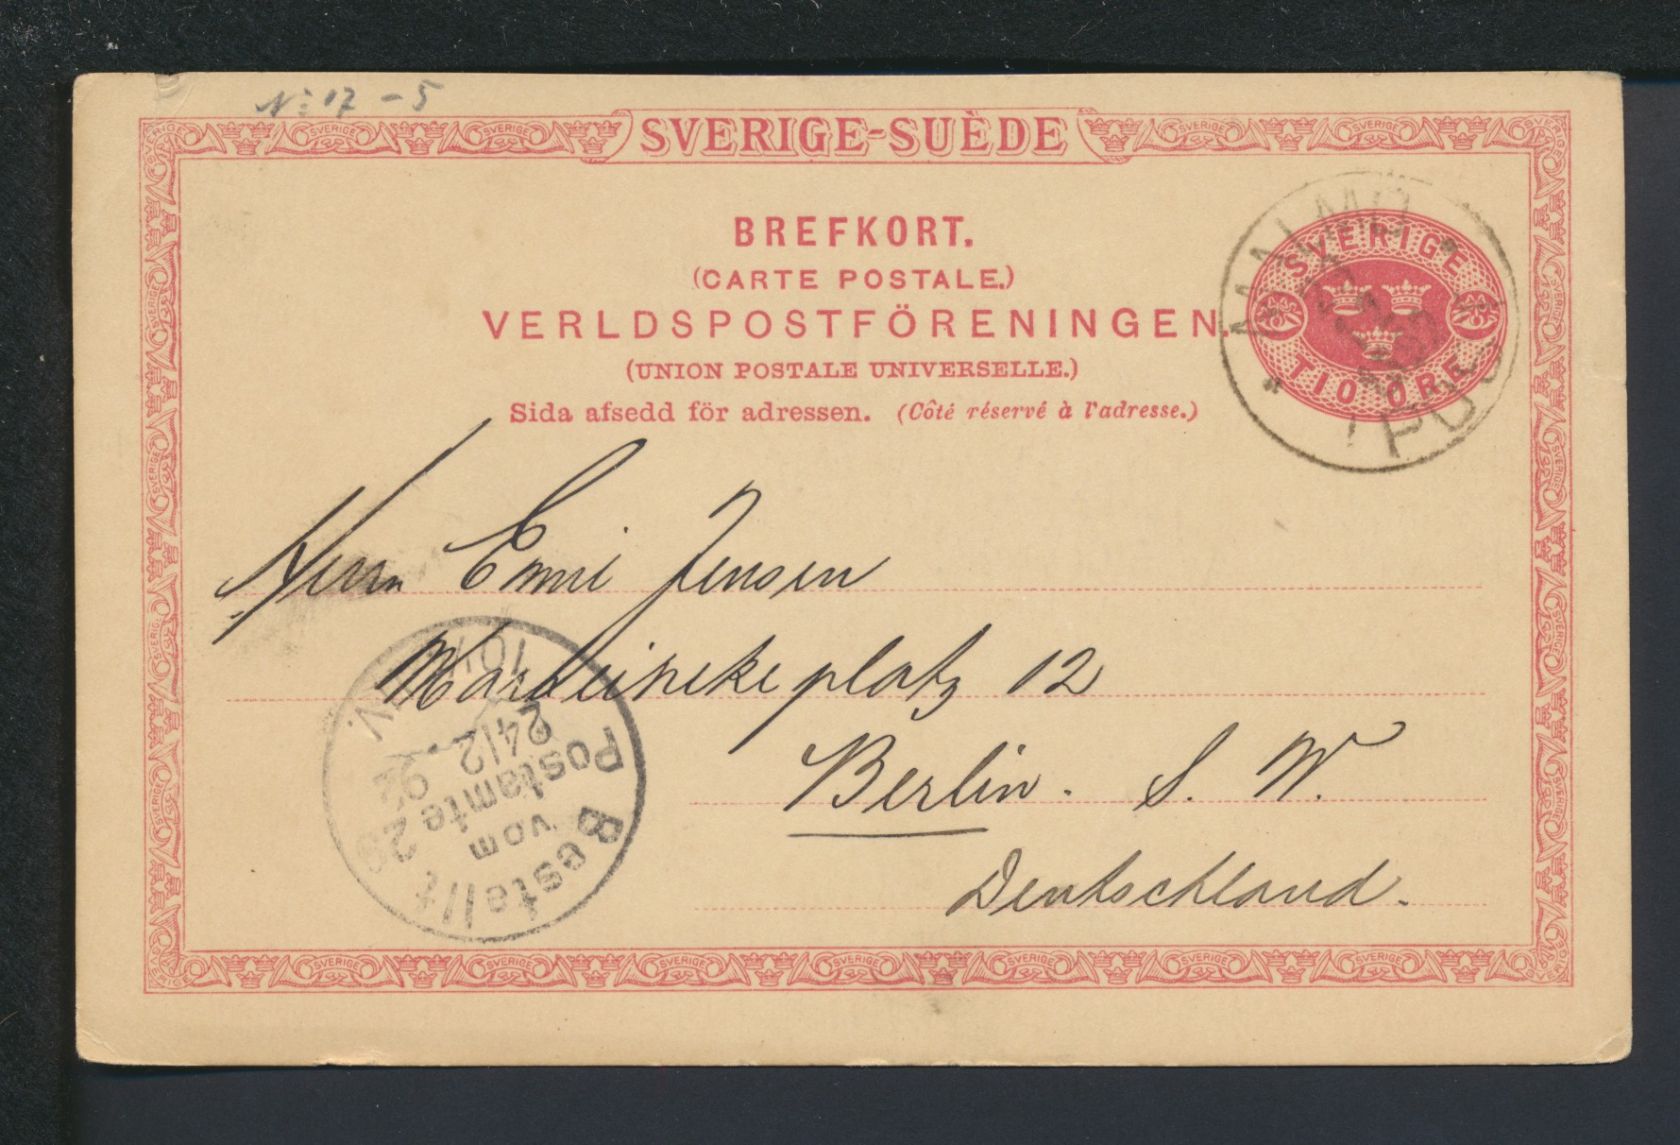 N: 17 - 5
SVERIGE-SUÈDE
BREFKORT.
(CARTE POSTALE.)
VERLDSPOSTFÖRENINGEN.
(UNION POSTALE UNIVERSELLE.)
Sida afsedd för adressen. (Côté réservé à l'adresse.)
SVERIGE
TIO ÖRE
MALMÖ
Herrn Emil Jensen
Marheineke platz 12
Berlin. S. W.
Deutschland.
Bestellt
vom
Postamte 29
24/2 92